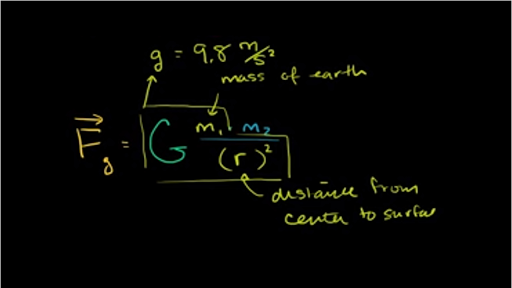 g = 9.8 m/s²
mass of earth
F⃗g = G m₁ m₂ / (r)²
distance from
center to surface